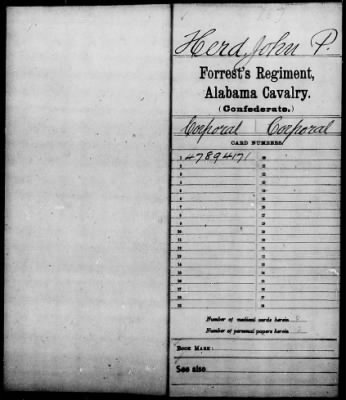 Herd, John P.
Forrest's Regiment,
Alabama Cavalry.
(Confederate.)
Corporal | Corporal
CARD NUMBERS.
1 47894171
Number of medical cards herein
Number of personal papers herein
BOOK MARK:
See also